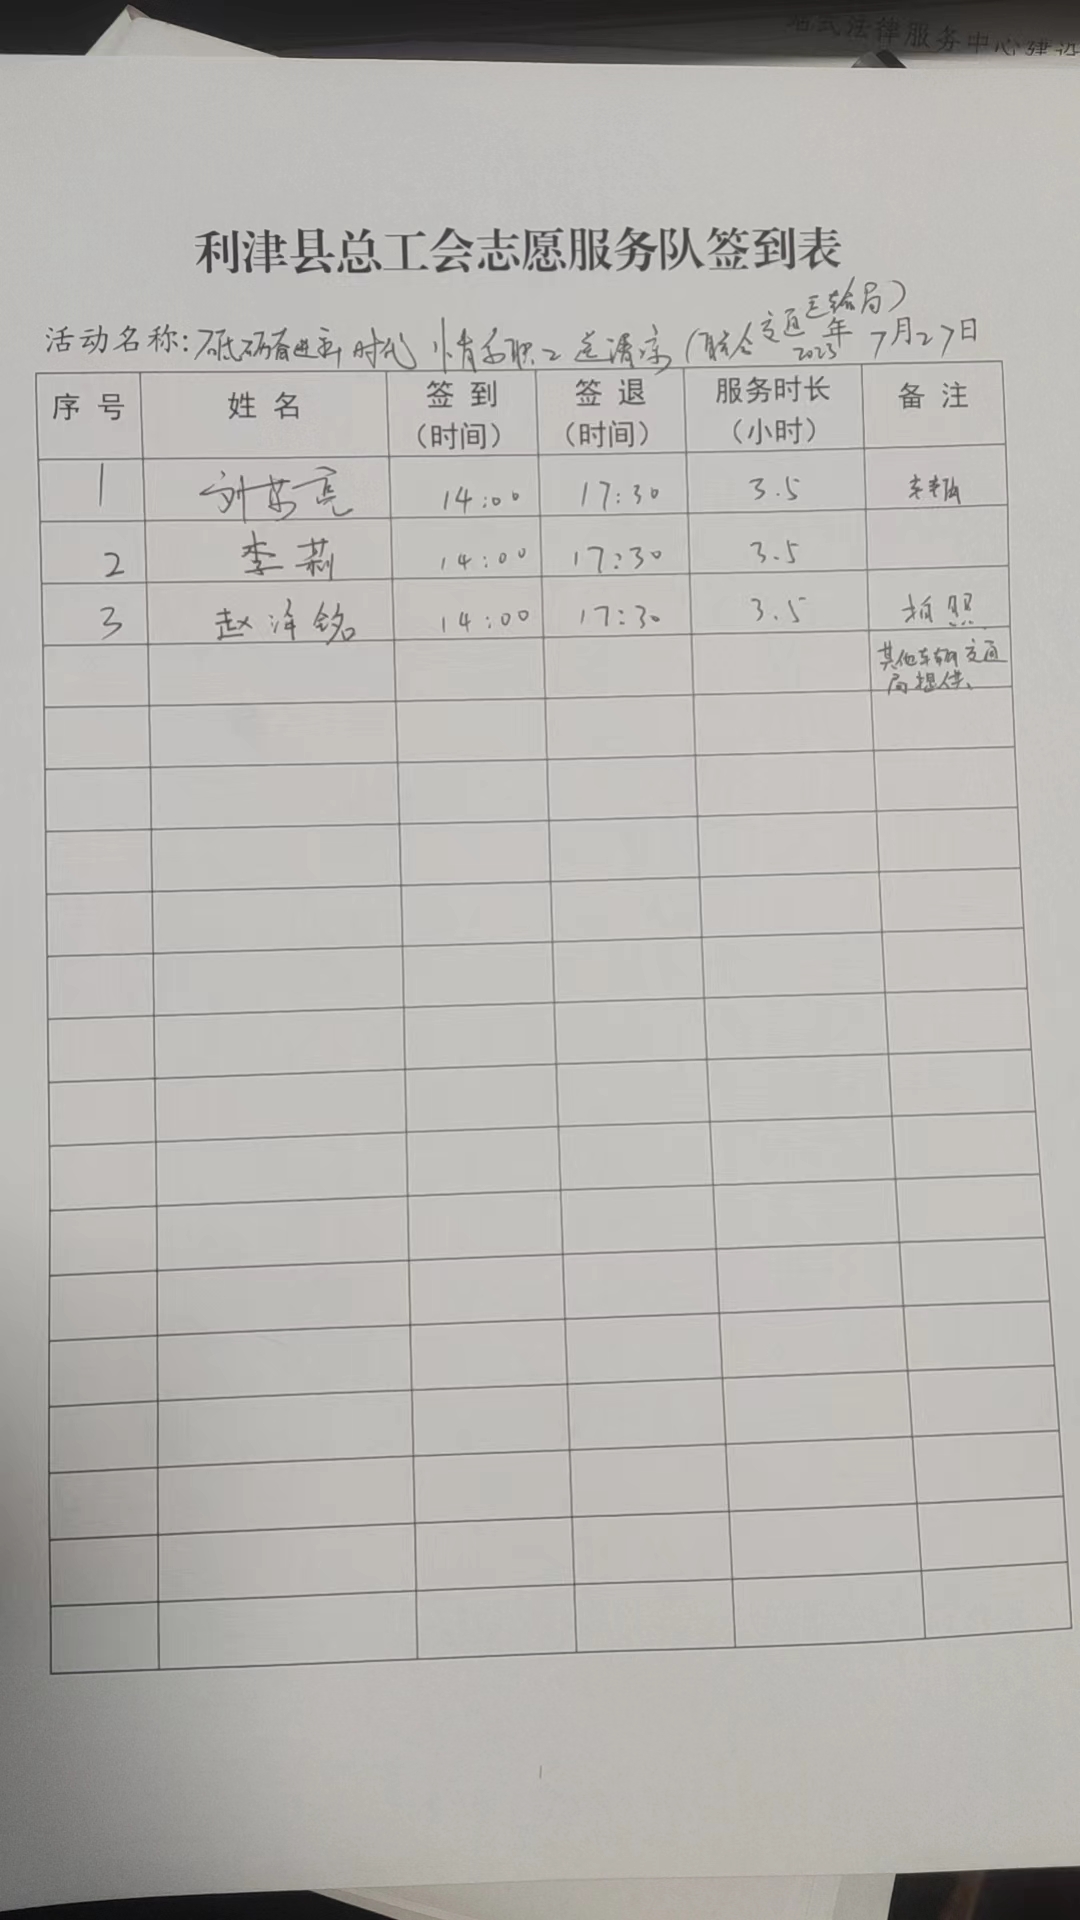 站式法律服务中心建设
利津县总工会志愿服务队签到表
活动名称:砥砺奋进新时代 情系职工送清凉(联合交通运输局) 2023年7月27日
序号 姓名 签到(时间) 签退(时间) 服务时长(小时) 备注
1 刘 亮 14:00 17:30 3.5 车辆
2 李莉 14:00 17:30 3.5
3 赵泽铭 14:00 17:30 3.5 拍照
其他车辆交通
局提供、
1